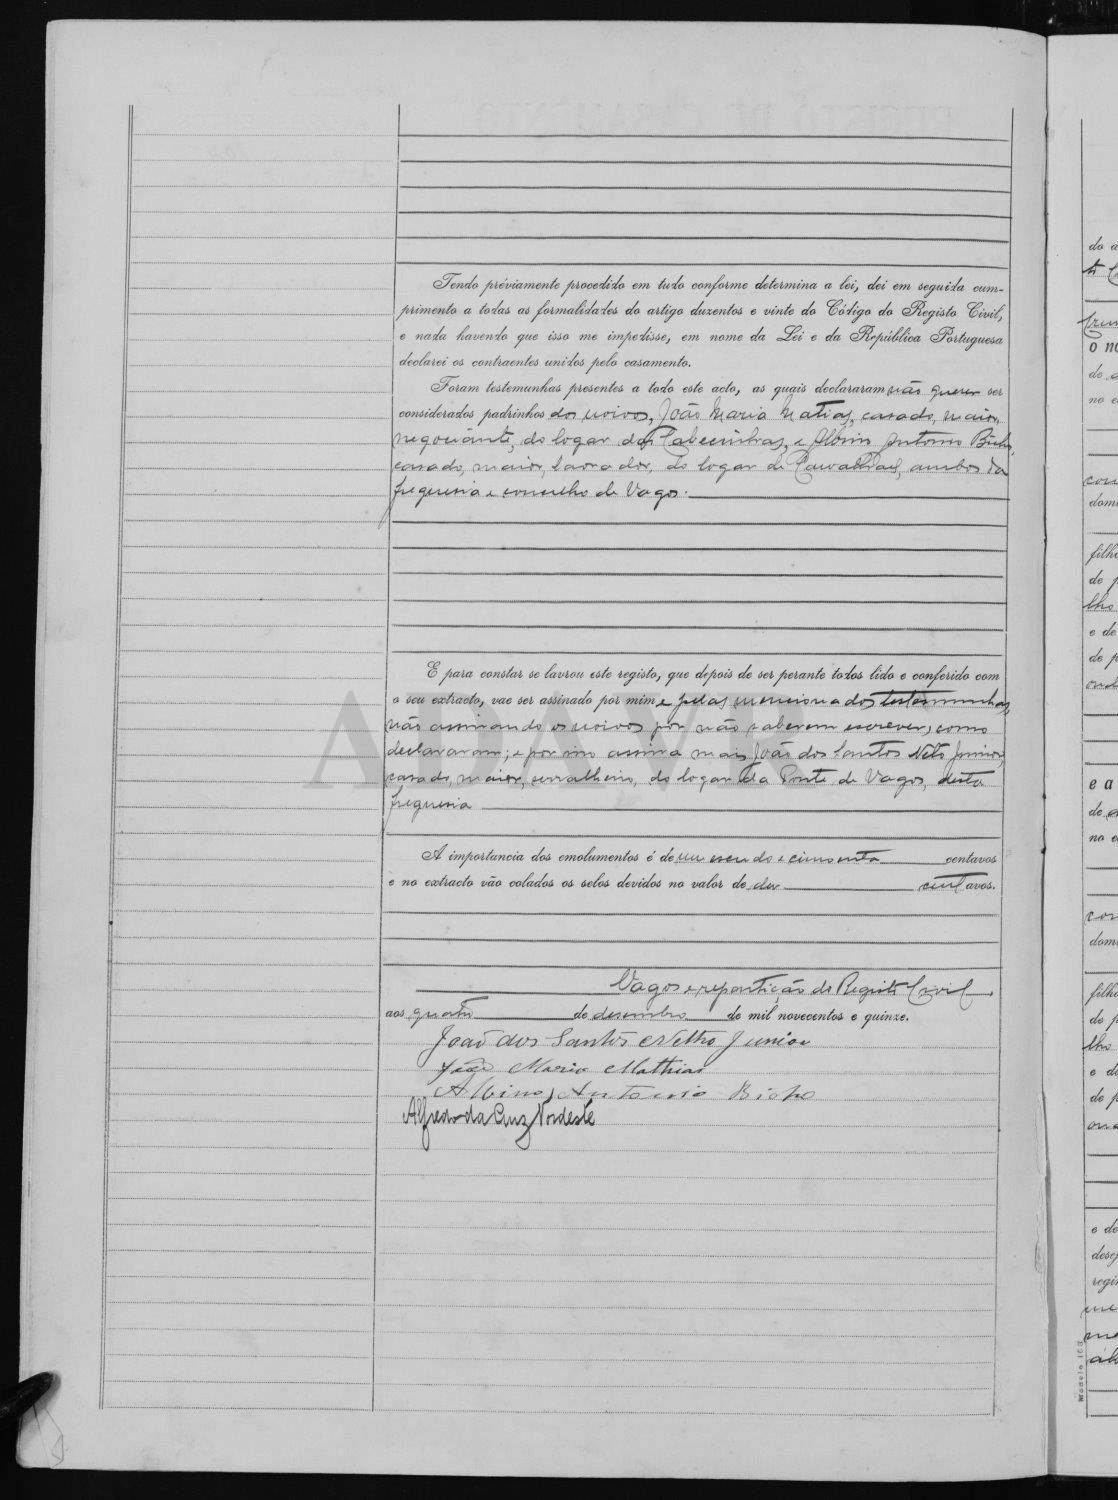 Tendo préviamente procedido em tudo conforme determina a lei, dei em seguida cum-
primento a todas as formalidades do artigo duzentos e vinte do Código do Registo Civil,
e nada havendo que isso me impedisse, em nome da Lei e da República Portuguesa
declarei os contraentes unidos pelo casamento.
Foram testemunhas presentes a todo este acto, as quais declararam não querer ser
considerados padrinhos dos noivos, João Maria Matias, casado, maior,
negociante, do logar das Cabecinhas, e Albino Antonio Bicho,
casado, maior, lavrador, do logar de Carvalhaes, ambos da
freguesia e concelho de Vagos.
E para constar se lavrou este registo, que depois de ser perante todos lido e conferido com
o seu extracto, vae ser assinado por mim e pelas mencionados testemunhas,
não assinando os noivos por não saberem escrever, como
declararam; e por isso assina mais João dos Santos Neto Junior,
casado, maior, serralheiro, do logar da Ponte de Vagos, desta
freguesia
A importancia dos emolumentos é de um escudo e cincoenta centavos
e no extracto vão colados os selos devidos no valor de dez centavos.
Vagos e repartição do Registo Civil,
aos quatro de desembro de mil novecentos e quinze.
João dos Santos Netto Junior
João Maria Mathias
Albino Antonio Bicho
Alfredo da Cruz Nordeste
AD AVR
do a
o no
de
no e
con
domi
filho
de p
lho
e de
de p
onde
e a
de
no e
con
domi
filho
de p
lho
e de
de p
onde
e de
desej
regi
me
Modelo 108